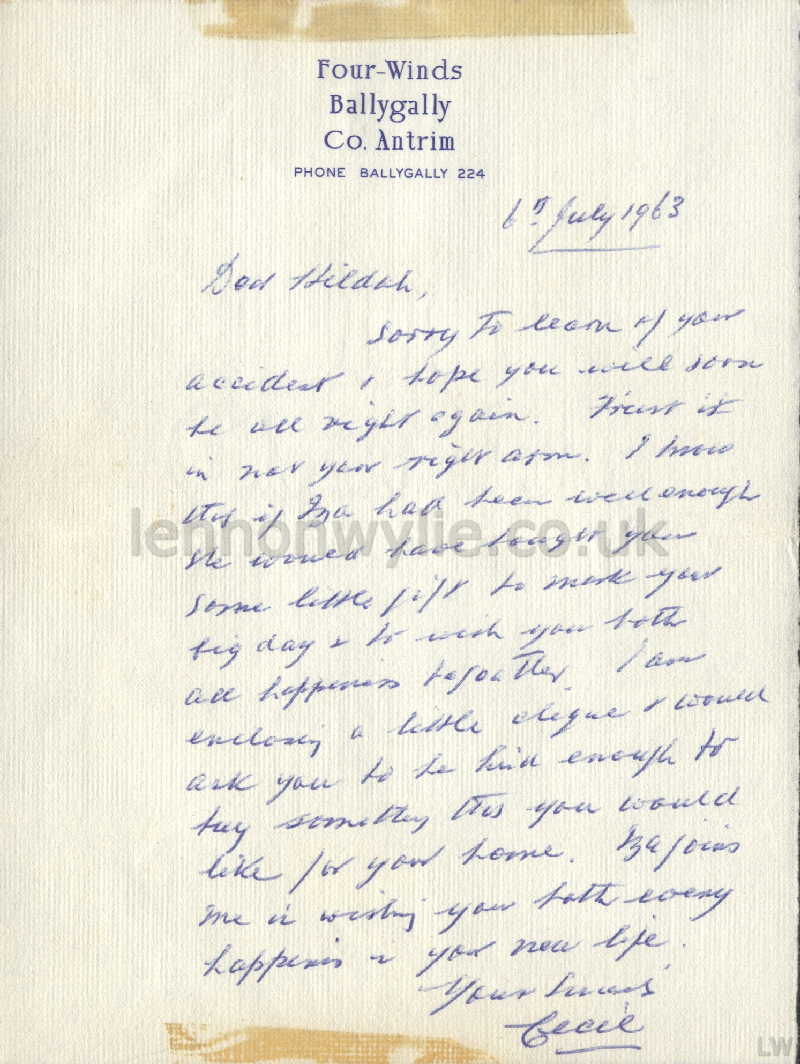 Four-Winds
Ballygally
Co. Antrim
PHONE BALLYGALLY 224
6th July 1963
Dear Hildah,
Sorry to learn of your
accident & hope you will soon
be all right again. Trust it
is not your right arm. I know
that if Iza had been well enough
she would have bought you
some little gift to mark your
big day & to wish you both
all happiness together. I am
enclosing a little cheque & would
ask you to be kind enough to
buy something that you would
like for your home. Iza joins
me in wishing you both every
happiness in your new life.
Your
Cecil
lennonwylie.co.uk
LW